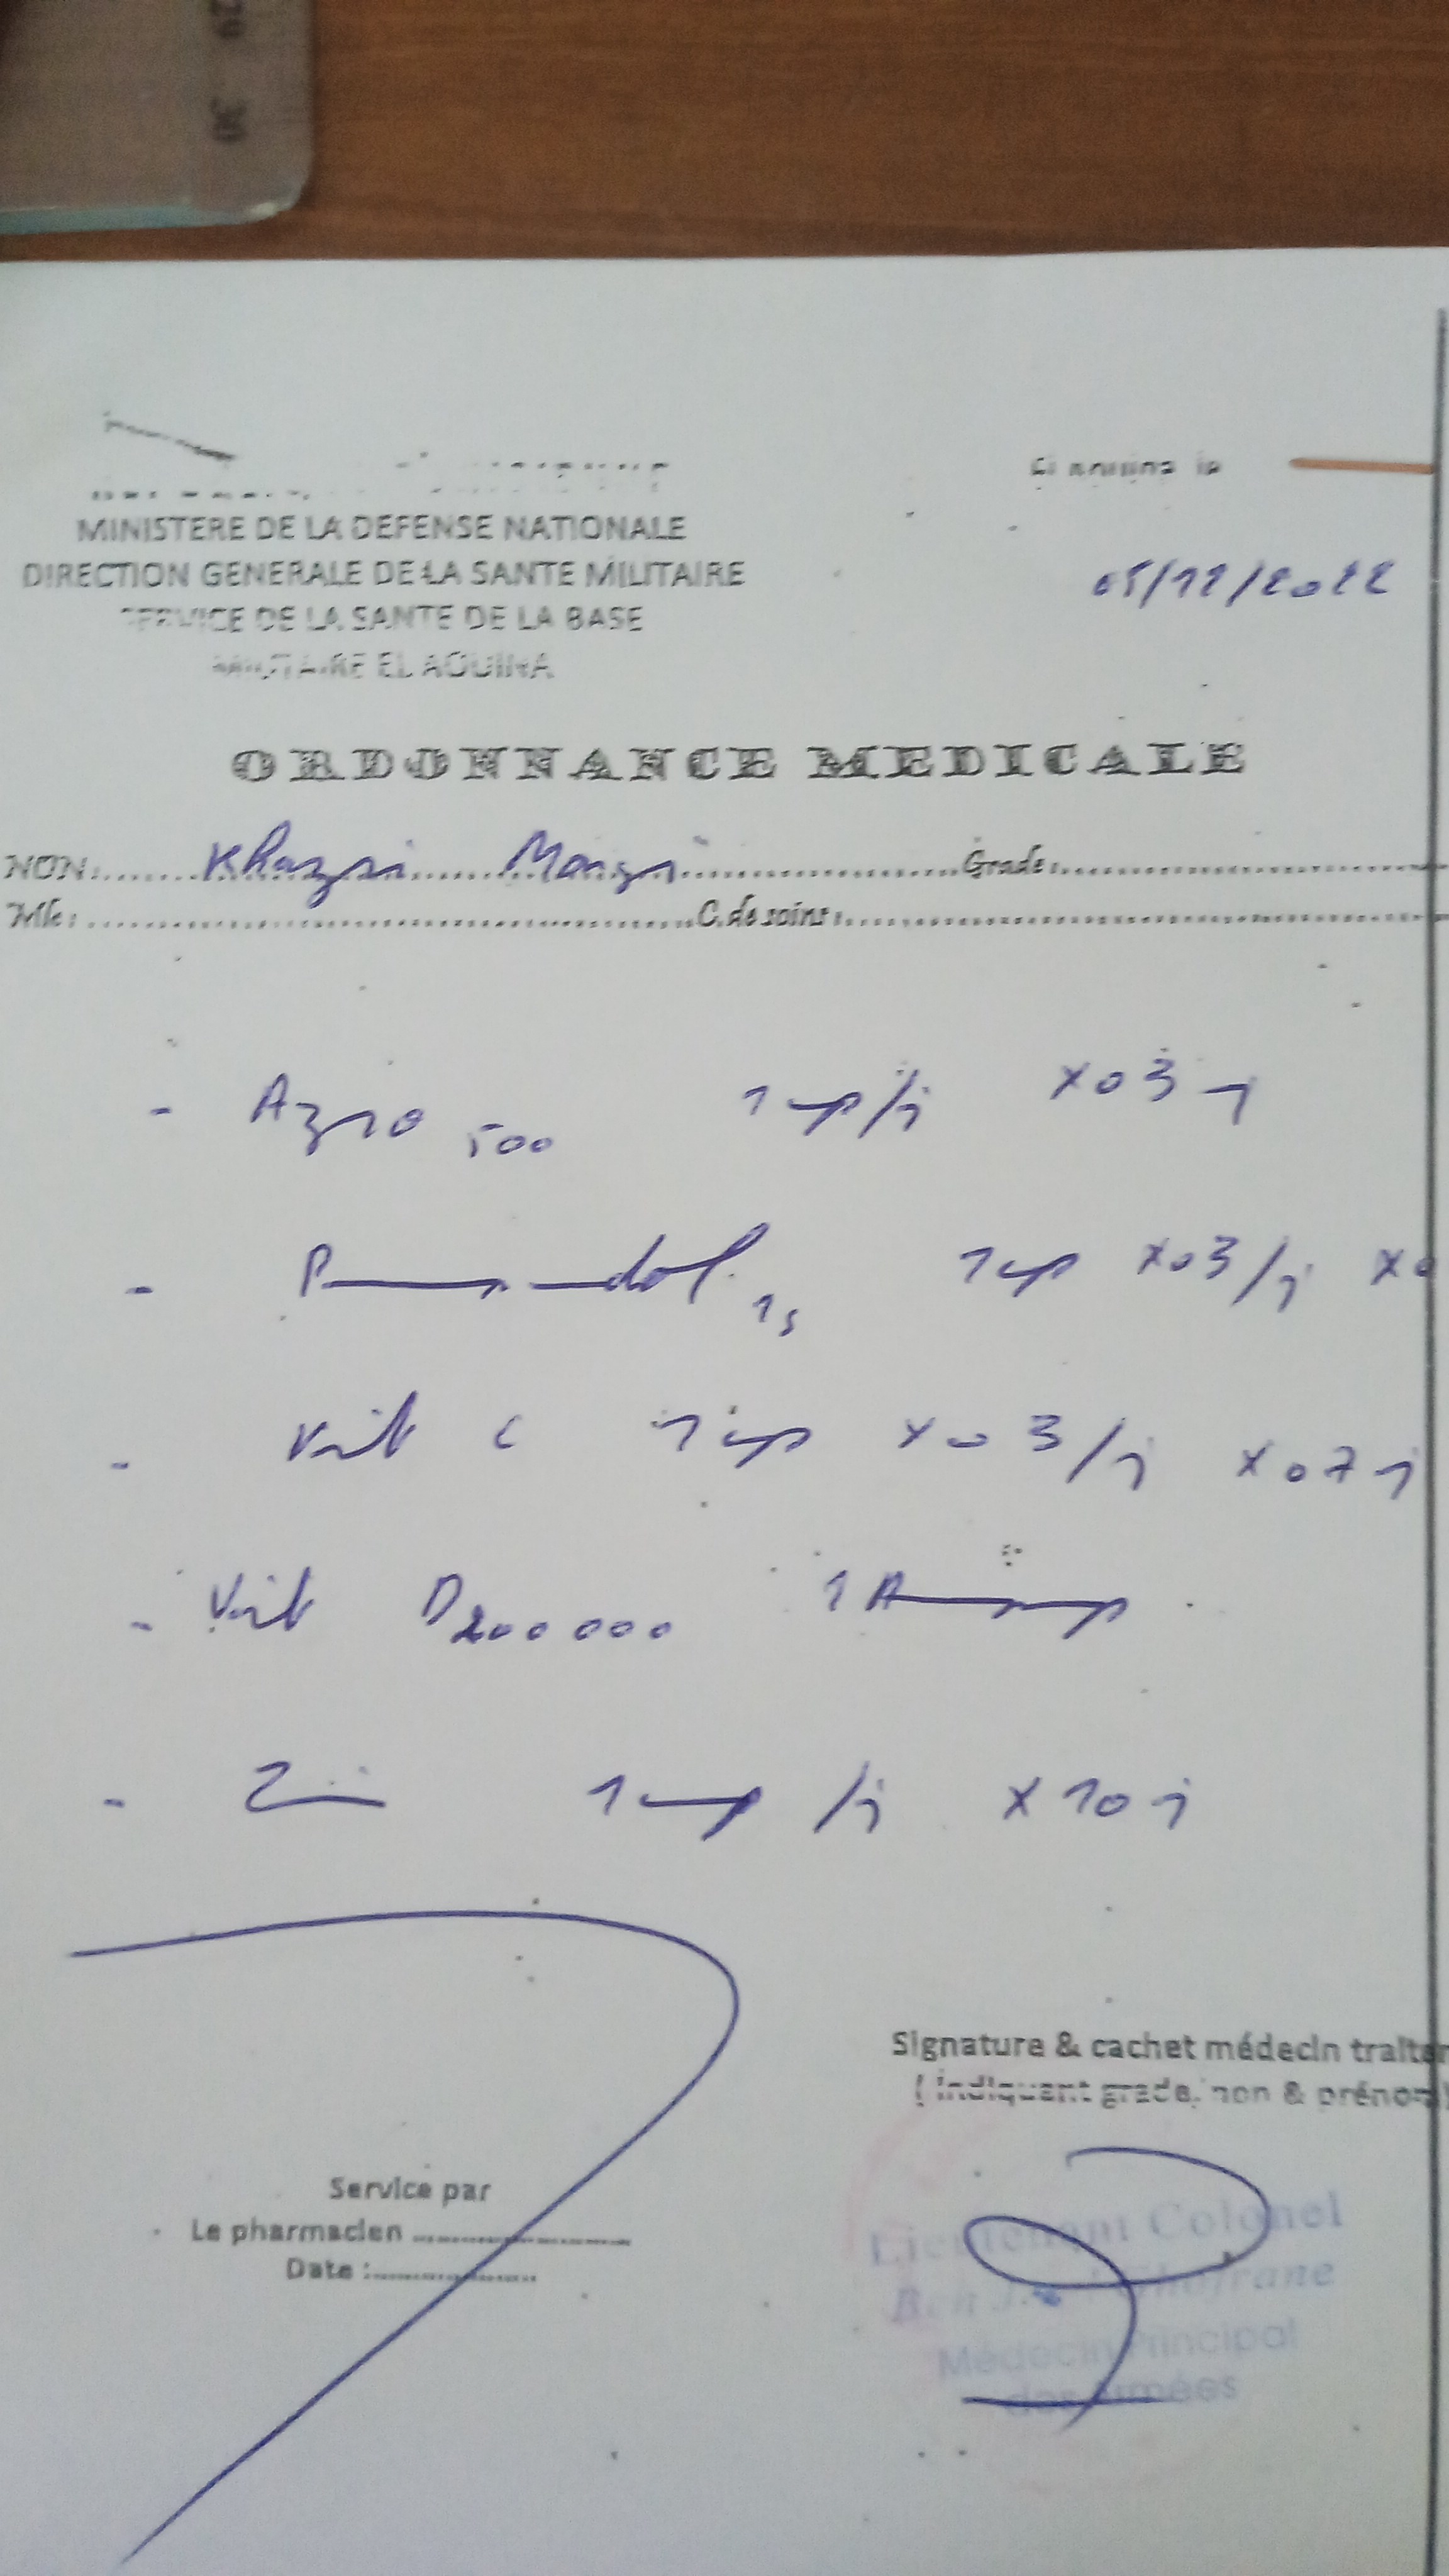 29 30
El aouina le
MINISTERE DE LA DEFENSE NATIONALE
DIRECTION GENERALE DE LA SANTE MILITAIRE
SERVICE DE LA SANTE DE LA BASE
MILITAIRE EL AOUINA
05/12/2022
ORDONNANCE MEDICALE
NON: Khazri Mongi Grade:
Mle: C. de soins:
- Azro 500 1 cp/j x 03 j
- 1 cp x 03/j x 0
- Vit C 1 cp x 03/j x 07 j
- Vit D 200 000 1 Amp
- 1 cp /j x 10 j
Signature & cachet médecin traitan
( indiquant grade, non & prénom)
Service par
Le pharmacien
Date :
Lieutenant Colonel
Ben
Médecin Principal
des Armées